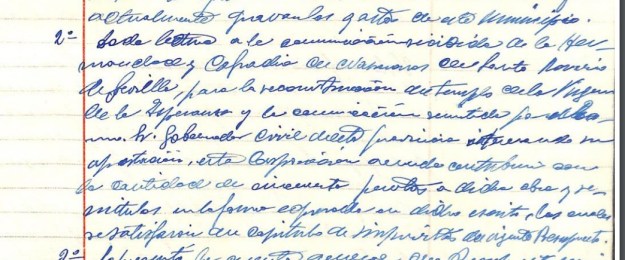 actualmente gravan los gastos de este Municipio.
2º Dada lectura a la comunicación recibida de la Her-
mandad y Cofradia de Nazarenos del Santo Rosario
de Sevilla, para la reconstrucción del templo de la Virgen
de la Esperanza y la comunicación remitida por el
Sr. Gobernador Civil de esta provincia interesando su
aportación, esta Corporación acuerda contribuir con
la cantidad de cincuenta pesetas a dicha obra y re-
mitirlas en la forma expresada en dicho escrito, las cuales
se satisfarán del capitulo de imprevistos del vigente Presupuesto.